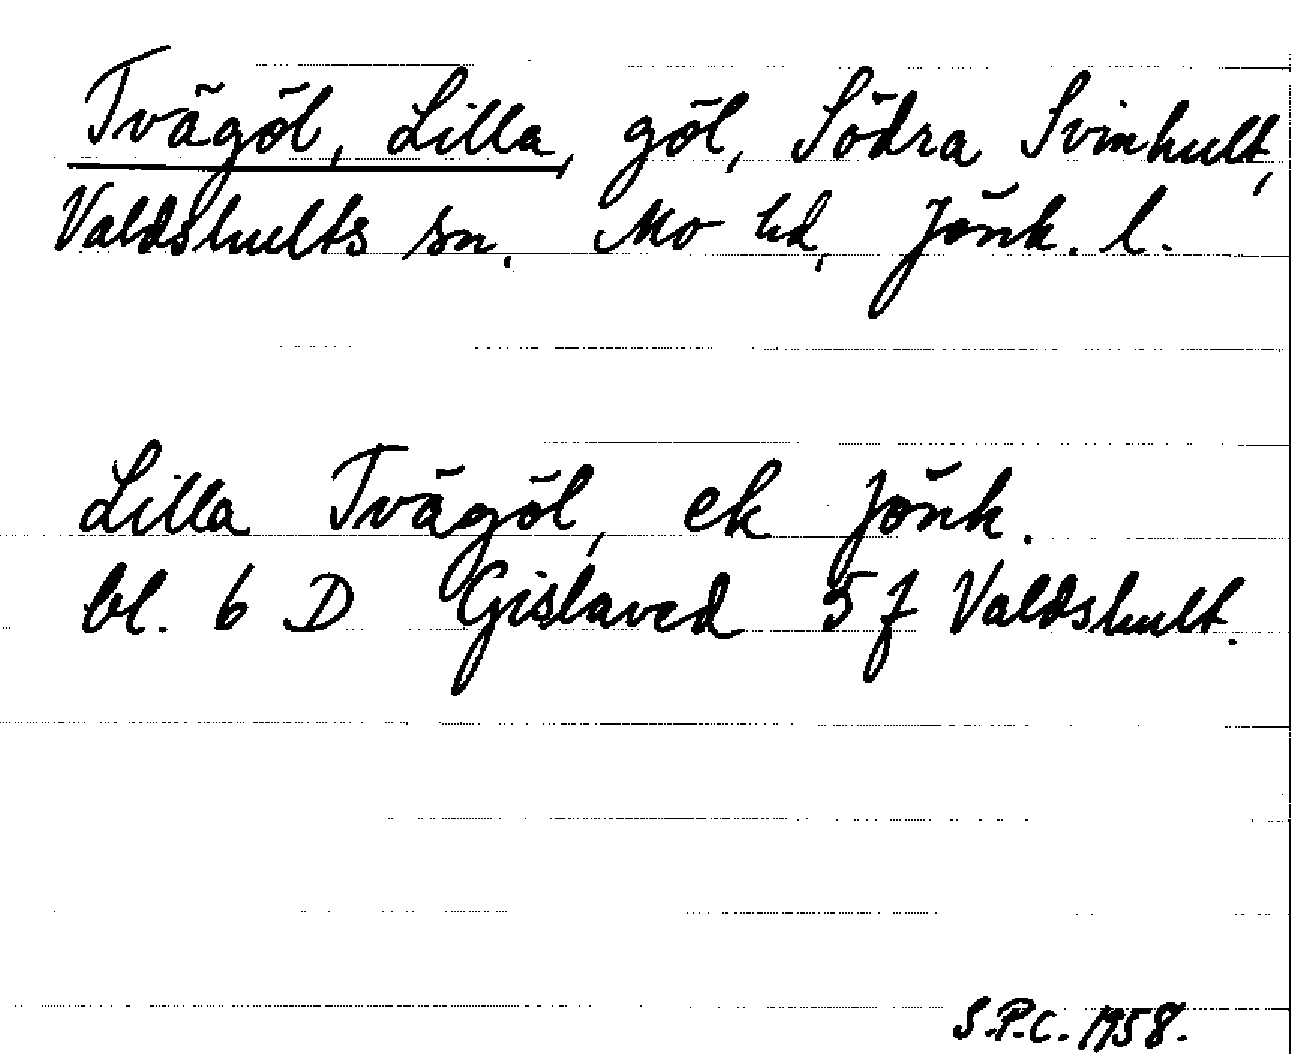 Tvägöl, Lilla, göl, Södra Svinhult,
Valdshults sn, Mo hd, Jönk. l.
Lilla Tvägöl, ek Jönk.
bl. 6 D Gislaved 5 f Valdshult.
S.P.C. 1958.